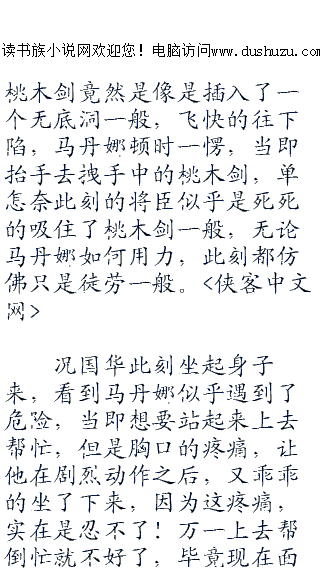 读书族小说网欢迎您！电脑访问www.dushuzu.com
桃木剑竟然是像是插入了一
个无底洞一般，飞快的往下
陷，马丹娜顿时一愣，当即
抬手去拽手中的桃木剑，单
怎奈此刻的将臣似乎是死死
的吸住了桃木剑一般，无论
马丹娜如何用力，此刻都仿
佛只是徒劳一般。<侠客中文
网>
况国华此刻坐起身子
来，看到马丹娜似乎遇到了
危险，当即想要站起来上去
帮忙，但是胸口的疼痛，让
他在剧烈动作之后，又乖乖
的坐了下来，因为这疼痛，
实在是忍不了！万一上去帮
倒忙就不好了，毕竟现在面